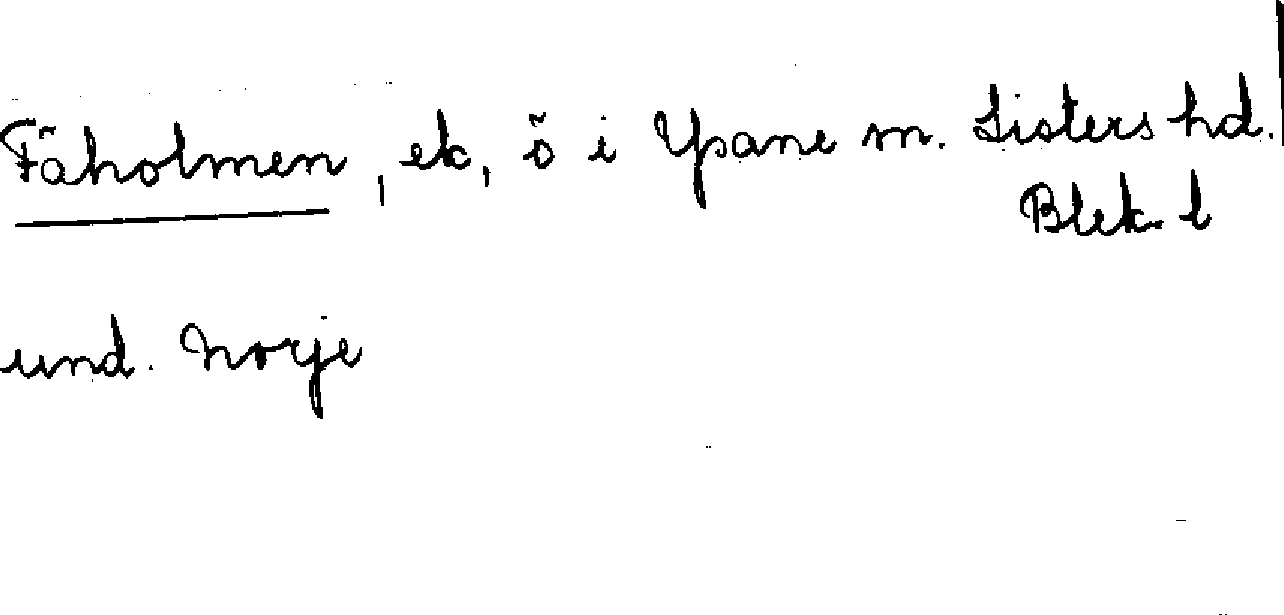 Fåholmen, ek, ö i Ysane sn. Listers hd.
Blek. l
und. Norje